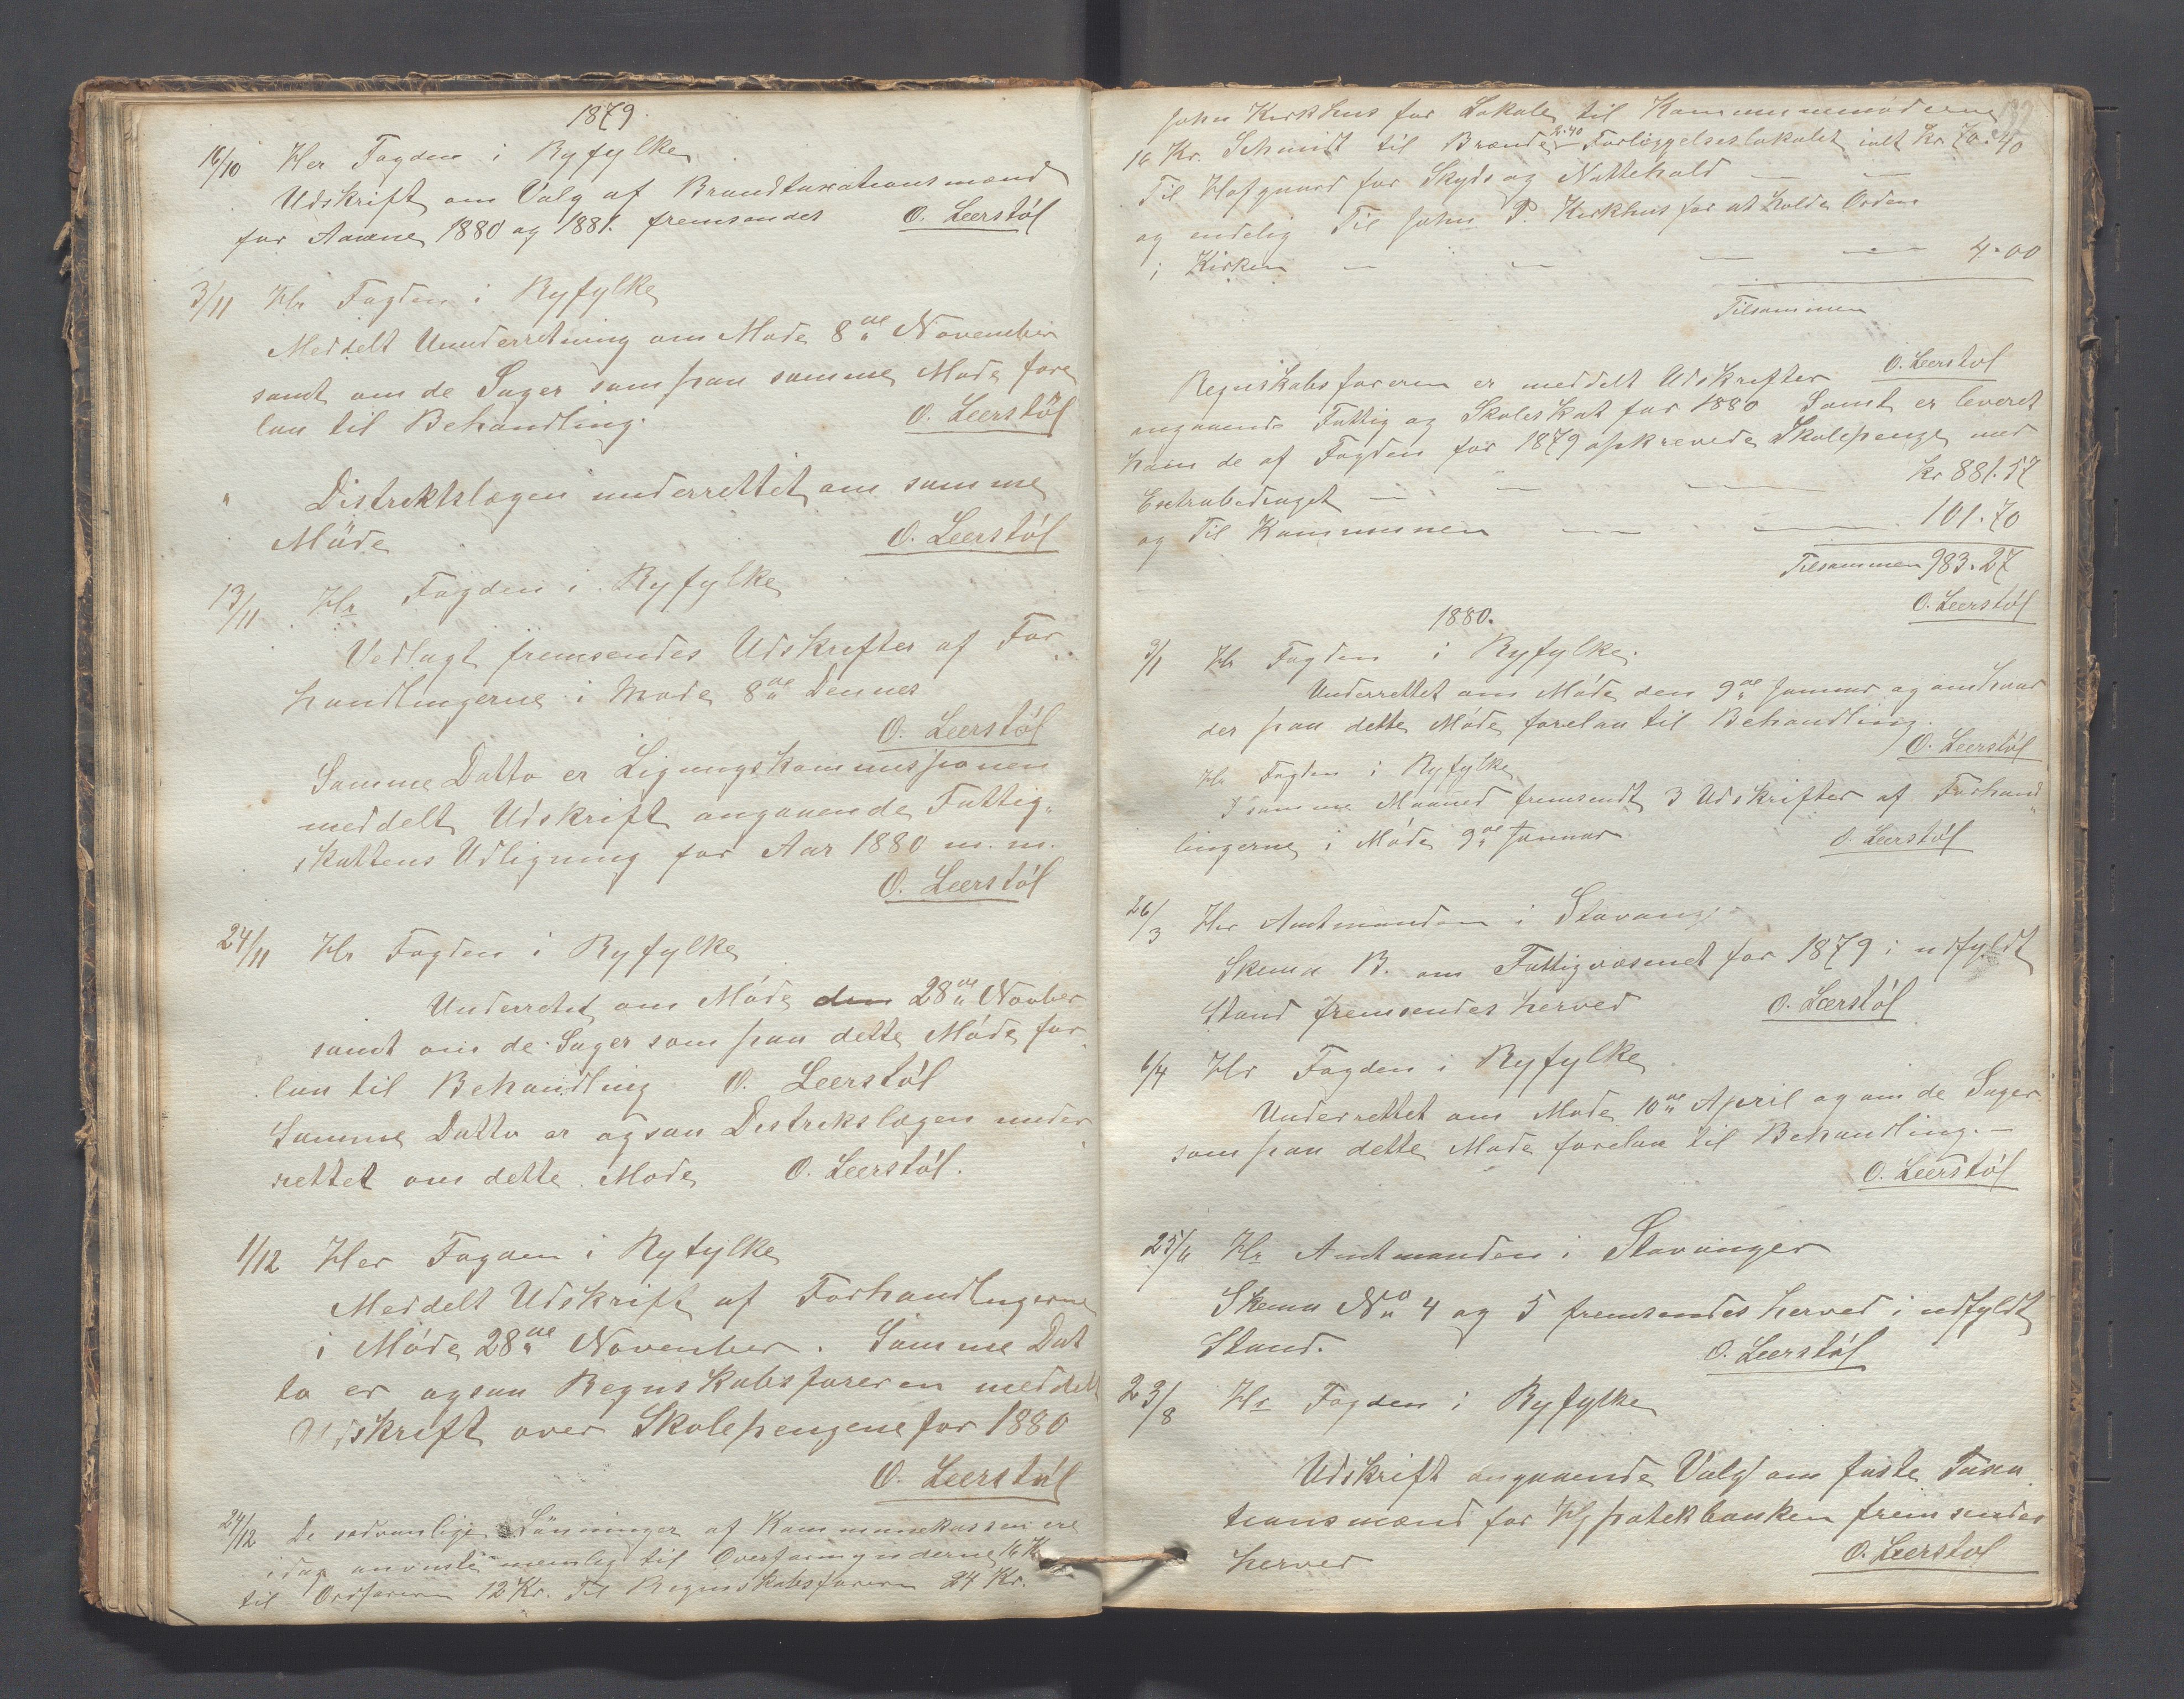 1879.
16/10 Her Fogden i Ryfylke
Udskrift om Valg af Brandtaxationsmænd
for Aarene 1880 og 1881. fremsendes O. Leerstöl
3/11 Hr Fogden i Ryfylke
Meddelt Uunderretning om Møde 8de November
samt om de Sager som paa samme Møde fore
laa til Behandling. O. Leerstöl
" Distriktslægen underrettet om samme
Möde O. Leerstöl
13/11 Hr Fogden i Ryfylke
Vedlagt fremsendes Udskrifter af For-
handlingerne i Møde 8de Dennes
O. Leerstöl
Samme Datto er Ligningskommissionen
meddelt Udskrift angaaende Fattig-
skattens Udligning for Aar 1880 m. m.
O. Leerstöl
24/11 Hr Fogden i Ryfylke
Underretet om Möde den 28de Novber
samt om de Sager som paa dette Möde for
laa til Behandling O. Leerstöl
Samme Datto er ogsaa Distrikslægen under
rettet om dette Møde O. Leerstöl.
1/12 Her Fogden i Ryfylke
Meddelt Udskrift af Forhandlingerne
i Möde 28de November. Samme Dat
to er ogsaa Regnskabsføreren meddelt
Udskrift over Skolepengene for 1880
O. Leerstöl
24/12 De sædvanlige Lønninger af Kommunekassen ere
idag anviste nemlig til Overformynderne 16 Kr
til Ordføreren 12 Kr. Til Regnskabsføreren 24 Kr.
John Kirkhus for Lokale til Kommunemøderne
16 Kr. Schmidt til Brænde 2.40 Forligelseslokalet ialt Kr 70.40
Til Hofgaard for Skyds og Nattehold — —
og endelig Til John P. Kirkhus for at holde Orden
i Kirken — — — — 4.00
Tilsammen
O. Leerstol
Regnskabsføreren er meddelt Udskrifter
angaaende Fattig og Skoleskat for 1880 Samt er leveret
ham de af Fogden for 1879 opkrævede Skolepenge med
Extrabidraget — — — Kr 881.57
og Til Kommunen — — 101.70
Tilsammen 983.27
O. Leerstöl
1880.
3/1 Hr Fogden i Ryfylke.
Underrettet om Møde den 9de Januar og om hvad
der paa dette Møde forelaa til Behandling.
O. Leerstöl
Hr Fogden i Ryfylke
I samme Maaned fremsendt 3 Udskrifter af Forhand
lingerne i Møde 9de Januar O. Leerstöl
26/3 Her Amtmanden i Stavanger
Skema B. om Fattigvæsenet for 1879 i udfyldt
Stand fremsendes herved O. Leerstöl
6/4 Hr Fogden i Ryfylke
Underrettet om Møde 10de April og om de Sager
som paa dette Møde forelaa til Behandling. —
O. Leerstöl
25/6 Hr Amtmanden i Stavanger
Skema No 4 og 5 fremsendes herved i udfyldt
Stand. O. Leerstöl
23/8 Hr Fogden i Ryfylke
Udskrift angaaende Valg om faste Taxa
tionsmænd for Hypotekbanken fremsendes
herved O. Leerstol